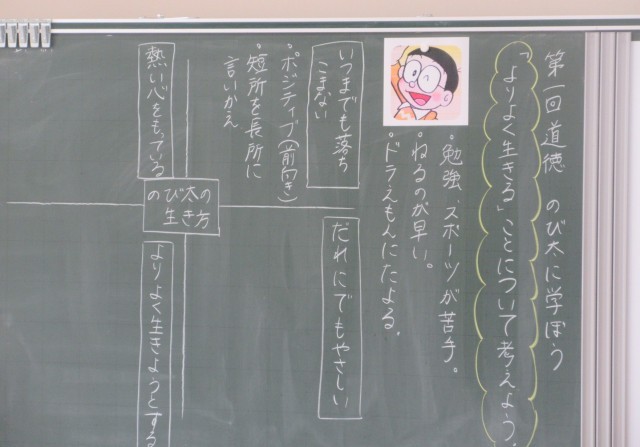 第一回道徳 のび太に学ぼう
「よりよく生きる」ことについて考えよう。
・勉強、スポーツが苦手。
・ねるのが早い。
・ドラえもんにたよる。
いつまでも落ち
こまない
・ポジティブ(前向き)
・短所を長所に
言いかえ
だれにでもやさしい
熱い心をもっている
のび太の
生き方
よりよく生きようとする